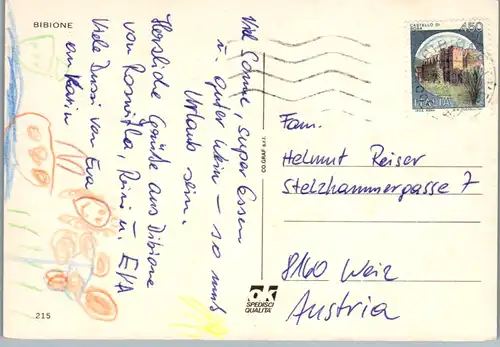 BIBIONE
Viel Sonne, super Essen
u. guter Wein – so muß
Urlaub sein.
Herzliche Grüße aus Bibione
von Roswitha, Reini u. EVA
Viele Bussi von Eva
an Karin
215
CO.GRAF.
SPEDISCI
QUALITA'
CASTELLO DI
450
ITALIA
Fam.
Helmut Reiser
Stelzhammergasse 7
8160 Weiz
Austria